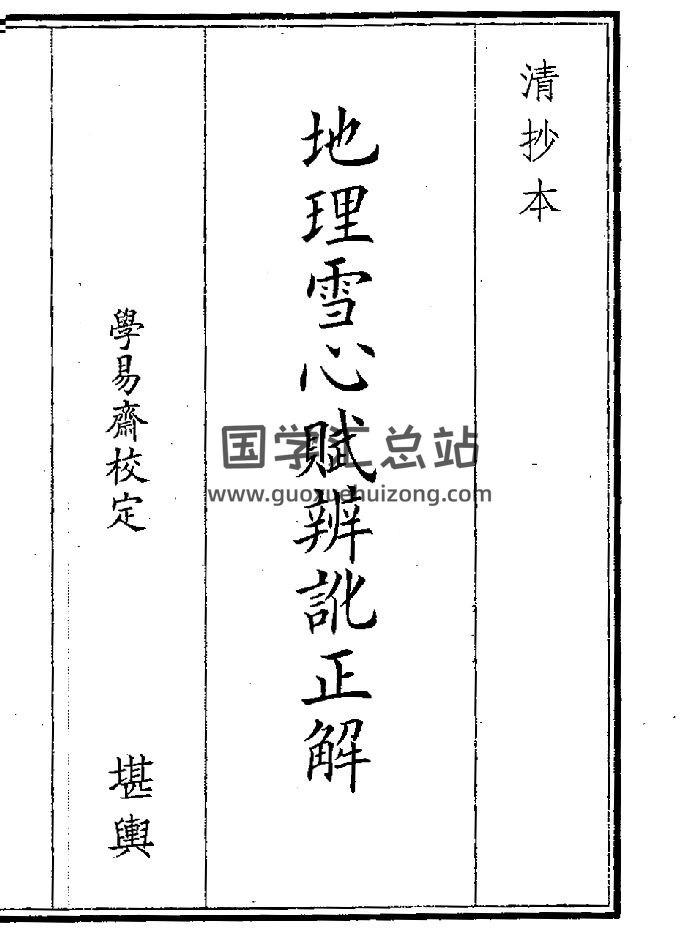 清抄本
地理雪心賦辨訛正解
學易齋校定
堪輿
国学汇总站
www.guoxuehuizong.com